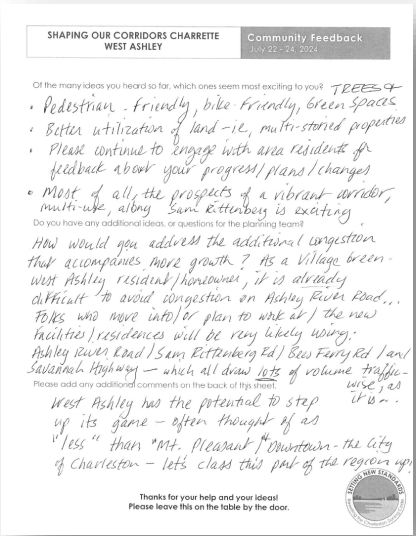 SHAPING OUR CORRIDORS CHARRETTE
WEST ASHLEY
Community Feedback
July 22 - 24, 2024
Of the many ideas you heard so far, which ones seem most exciting to you?
TREES +
• Pedestrian - Friendly, bike-friendly, Green Spaces
• Better utilization of land - ie, multi-storied properties
• Please continue to engage with area residents for
feedback about your progress/plans/changes
• Most of all, the prospects of a vibrant corridor,
multi-use, along Sam Rittenberg is exciting
Do you have any additional ideas, or questions for the planning team?
How would you address the additional congestion
that accompanies more growth? As a Village Green-
West Ashley resident/homeowner, it is already
difficult to avoid congestion on Ashley River Road...
Folks who move into/or plan to work at/ the new
Facilities/residences will be very likely using:
Ashley River Road/Sam Rittenberg Rd/Bees Ferry Rd/and
Savannah Highway - which all draw lots of volume traffic-
wise, as
it is -.
Please add any additional comments on the back of this sheet.
West Ashley has the potential to step
up its game - often thought of as
"less" than "Mt. Pleasant/"Downtown - the City
of Charleston - let's class this part of the region up!
Thanks for your help and your ideas!
Please leave this on the table by the door.
SETTING NEW STANDARDS